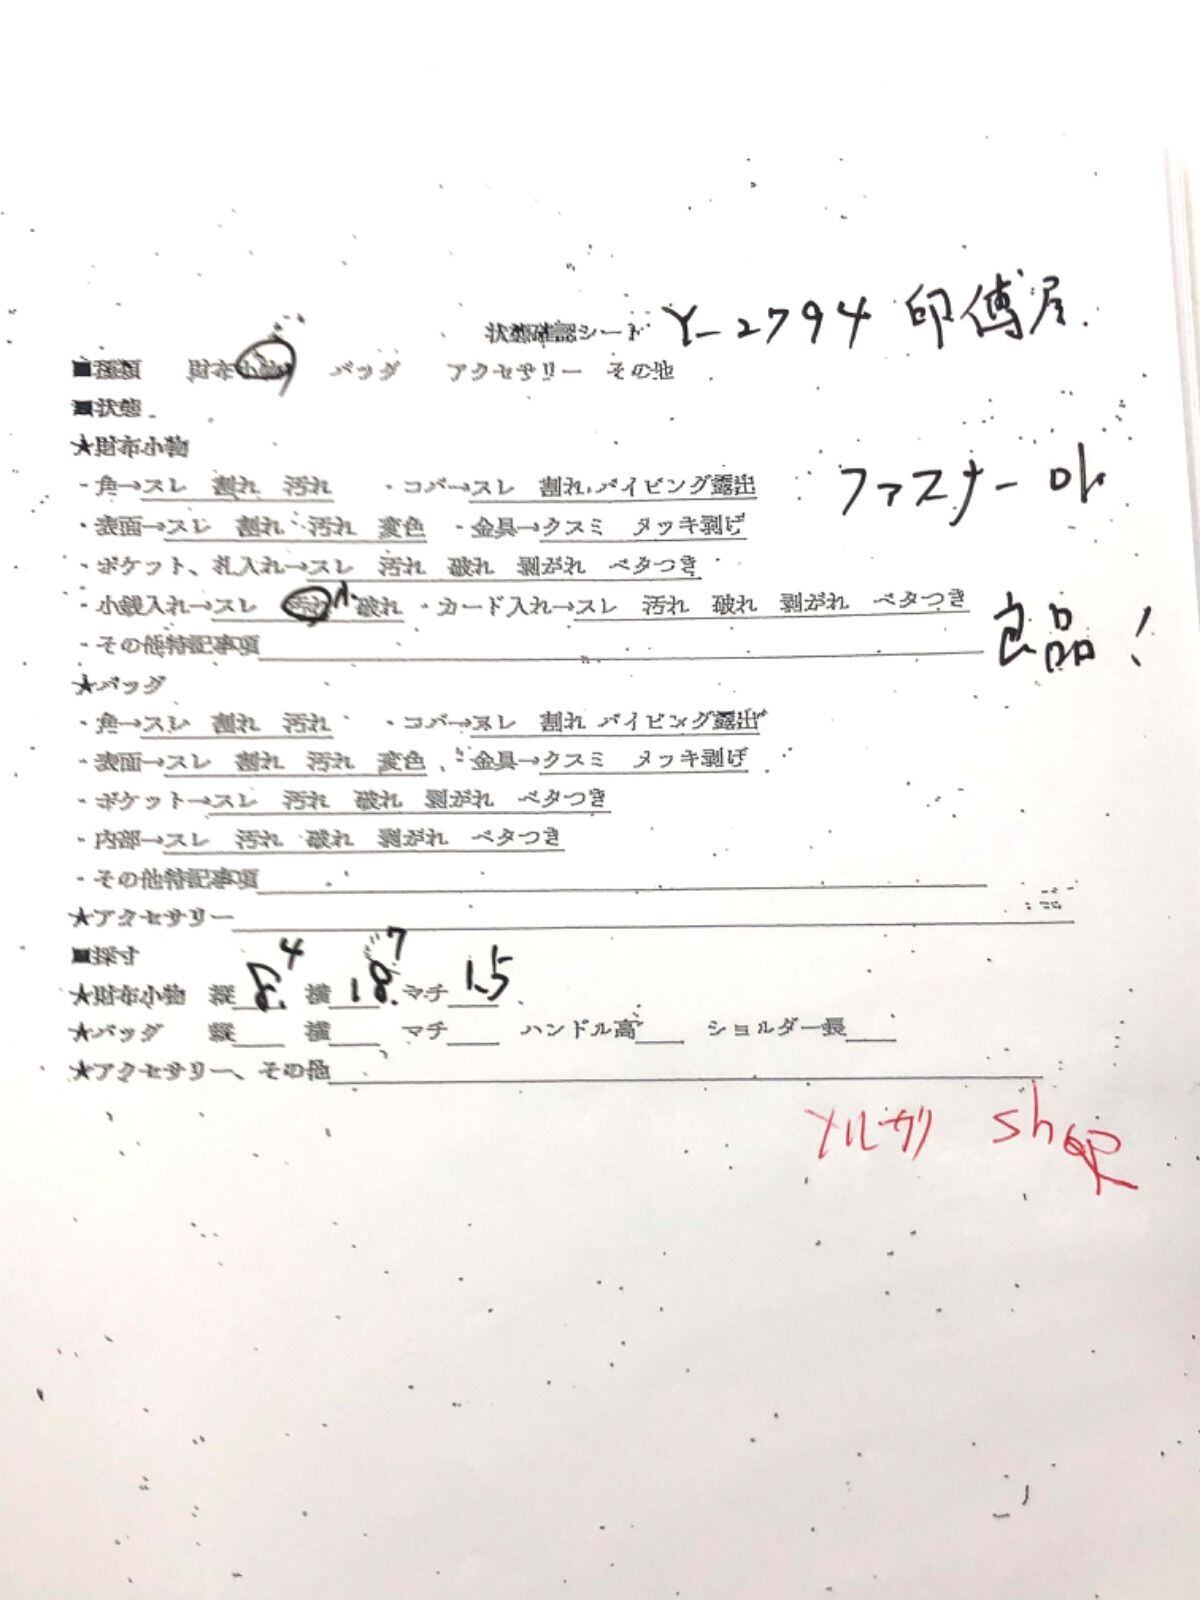 状態確認シート Y-2794 印傳屋
■種類 財布小物 バッグ アクセサリー その他
■状態
★財布小物
・角→スレ 割れ 汚れ ・コバ→スレ 割れ パイピング露出 ファスナー OK
・表面→スレ 割れ 汚れ 変色 ・金具→クスミ メッキ剥げ
・ポケット、札入れ→スレ 汚れ 破れ 剥がれ ベタつき
・小銭入れ→スレ 汚れ 小 破れ ・カード入れ→スレ 汚れ 破れ 剥がれ ベタつき
・その他特記事項 良品!
★バッグ
・角→スレ 割れ 汚れ ・コバ→スレ 割れ パイピング露出
・表面→スレ 割れ 汚れ 変色 ・金具→クスミ メッキ剥げ
・ポケット→スレ 汚れ 破れ 剥がれ ベタつき
・内部→スレ 汚れ 破れ 剥がれ ベタつき
・その他特記事項
★アクセサリー
■採寸
★財布小物 縦 8.4 横 18.7 マチ 1.5
★バッグ 縦 横 マチ ハンドル高 ショルダー長
★アクセサリー、その他
メルカリ shop